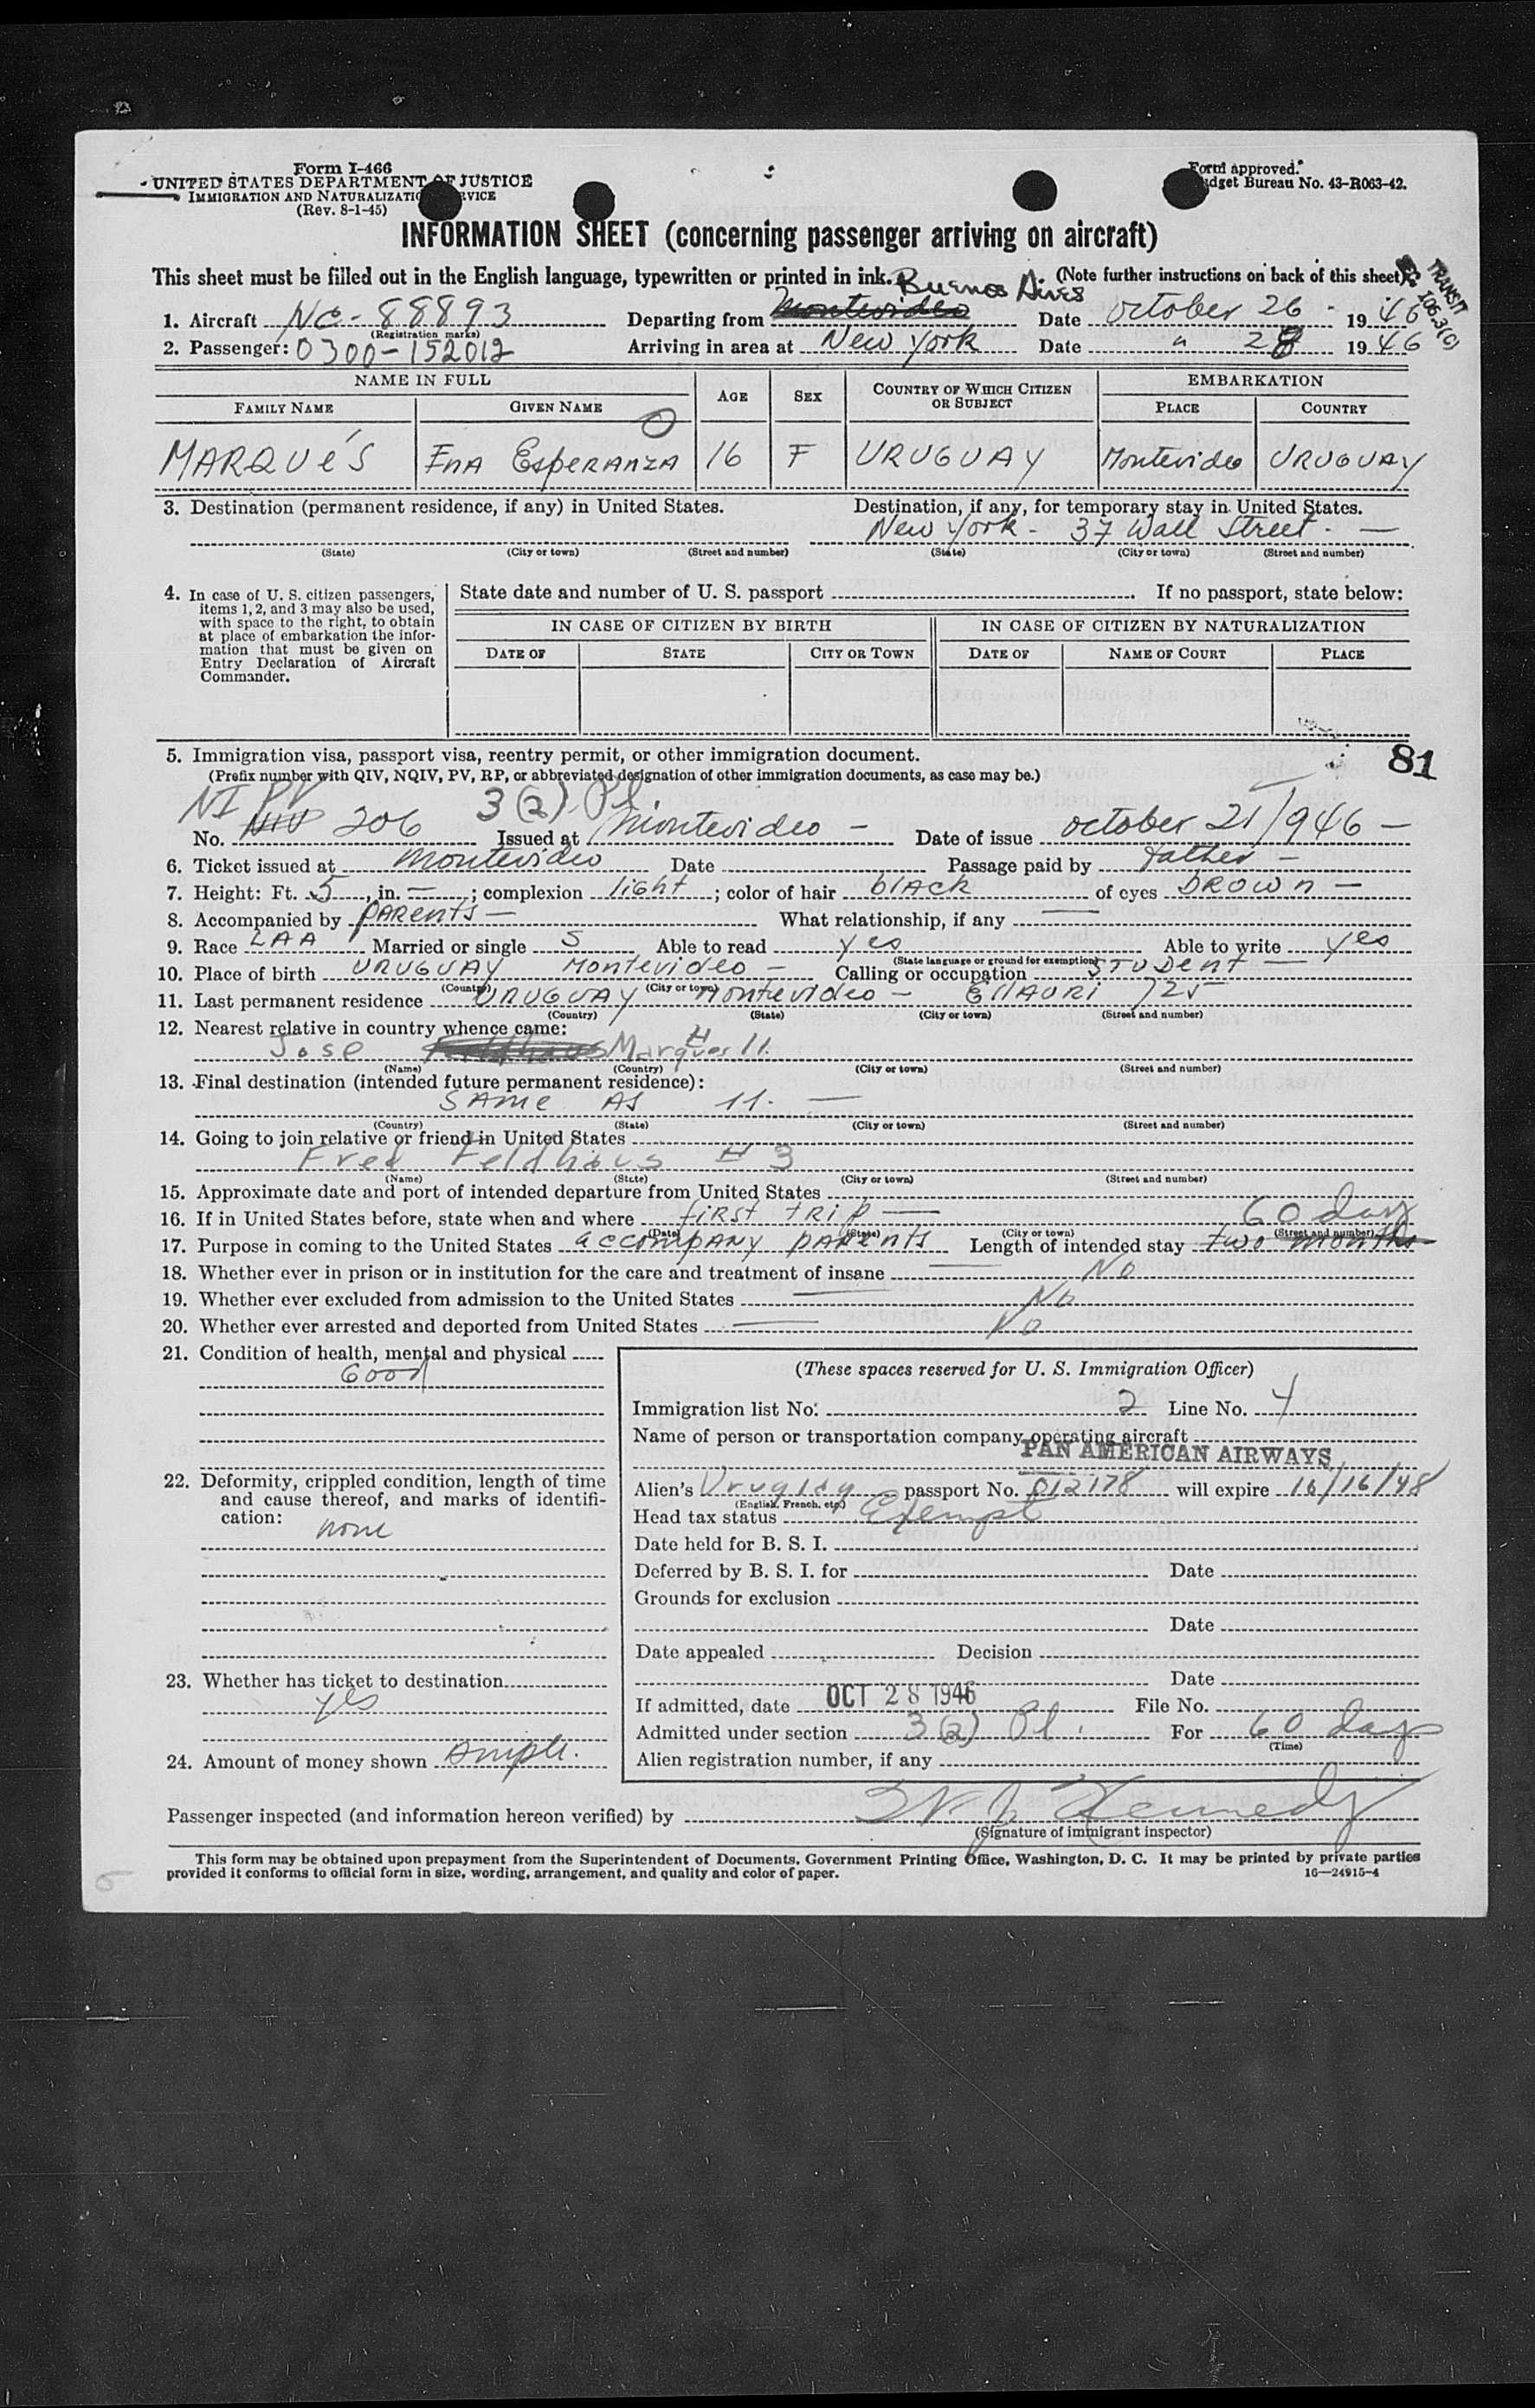 Form I-466
UNITED STATES DEPARTMENT OF JUSTICE
IMMIGRATION AND NATURALIZATION SERVICE
(Rev. 8-1-45)
Form approved.
Budget Bureau No. 43-R063-42.
INFORMATION SHEET (concerning passenger arriving on aircraft)
This sheet must be filled out in the English language, typewritten or printed in ink. (Note further instructions on back of this sheet)
TRANSIT
106.3(c)
Buenos Aires
1. Aircraft NC-88893 Departing from Montevideo Date October 26 - 1946
(Registration marks)
2. Passenger: 0300-152012 Arriving in area at New York Date " 28 1946
NAME IN FULL AGE SEX COUNTRY OF WHICH CITIZEN OR SUBJECT EMBARKATION
FAMILY NAME GIVEN NAME PLACE COUNTRY
MARQUéS EnA EsperANZA 16 F URUGUAY Montevideo URUGUAY
3. Destination (permanent residence, if any) in United States. Destination, if any, for temporary stay in United States.
New York - 37 Wall Street. —
(State) (City or town) (Street and number) (State) (City or town) (Street and number)
4. In case of U. S. citizen passengers, items 1, 2, and 3 may also be used, with space to the right, to obtain at place of embarkation the information that must be given on Entry Declaration of Aircraft Commander.
State date and number of U. S. passport If no passport, state below:
IN CASE OF CITIZEN BY BIRTH IN CASE OF CITIZEN BY NATURALIZATION
DATE OF STATE CITY OR TOWN DATE OF NAME OF COURT PLACE
81
5. Immigration visa, passport visa, reentry permit, or other immigration document.
(Prefix number with QIV, NQIV, PV, RP, or abbreviated designation of other immigration documents, as case may be.)
NI PV 3(2) Pl
No. NIV 206 Issued at Montevideo — Date of issue October 21/946 —
6. Ticket issued at Montevideo Date Passage paid by father —
7. Height: Ft. 5, in. —; complexion light; color of hair blAck of eyes brown —
8. Accompanied by pARents — What relationship, if any —
9. Race LAA Married or single S Able to read yes Able to write yes
(State language or ground for exemption)
10. Place of birth URUGUAY Montevideo — Calling or occupation STUDent —
(Country) (City or town)
11. Last permanent residence URUGUAY Montevideo — EllAURI 725
(Country) (State) (City or town) (Street and number)
12. Nearest relative in country whence came:
Jose Feldhaus Marques # 11.
(Name) (Country) (City or town) (Street and number)
13. Final destination (intended future permanent residence):
SAme AS 11. —
(Country) (State) (City or town) (Street and number)
14. Going to join relative or friend in United States
Fred Feldhaus # 3
(Name) (State) (City or town) (Street and number)
15. Approximate date and port of intended departure from United States
16. If in United States before, state when and where first trip — 60 days
(Date) (State) (City or town) (Street and number)
17. Purpose in coming to the United States accompANY pARents Length of intended stay two months
18. Whether ever in prison or in institution for the care and treatment of insane — No
19. Whether ever excluded from admission to the United States — No
20. Whether ever arrested and deported from United States — No
21. Condition of health, mental and physical
Good
22. Deformity, crippled condition, length of time and cause thereof, and marks of identification:
none
23. Whether has ticket to destination
yes
24. Amount of money shown Ample.
(These spaces reserved for U. S. Immigration Officer)
Immigration list No. 2 Line No. 4
Name of person or transportation company operating aircraft
PAN AMERICAN AIRWAYS
Alien's Uruguay passport No. 012178 will expire 10/16/48
(English, French, etc.)
Head tax status Exempt
Date held for B. S. I.
Deferred by B. S. I. for Date
Grounds for exclusion
Date
Date appealed Decision
Date
If admitted, date OCT 28 1946 File No.
Admitted under section 3(2) Pl. For 60 days
(Time)
Alien registration number, if any
Passenger inspected (and information hereon verified) by Kennedy
(Signature of immigrant inspector)
This form may be obtained upon prepayment from the Superintendent of Documents, Government Printing Office, Washington, D. C. It may be printed by private parties
provided it conforms to official form in size, wording, arrangement, and quality and color of paper. 16—24915-4